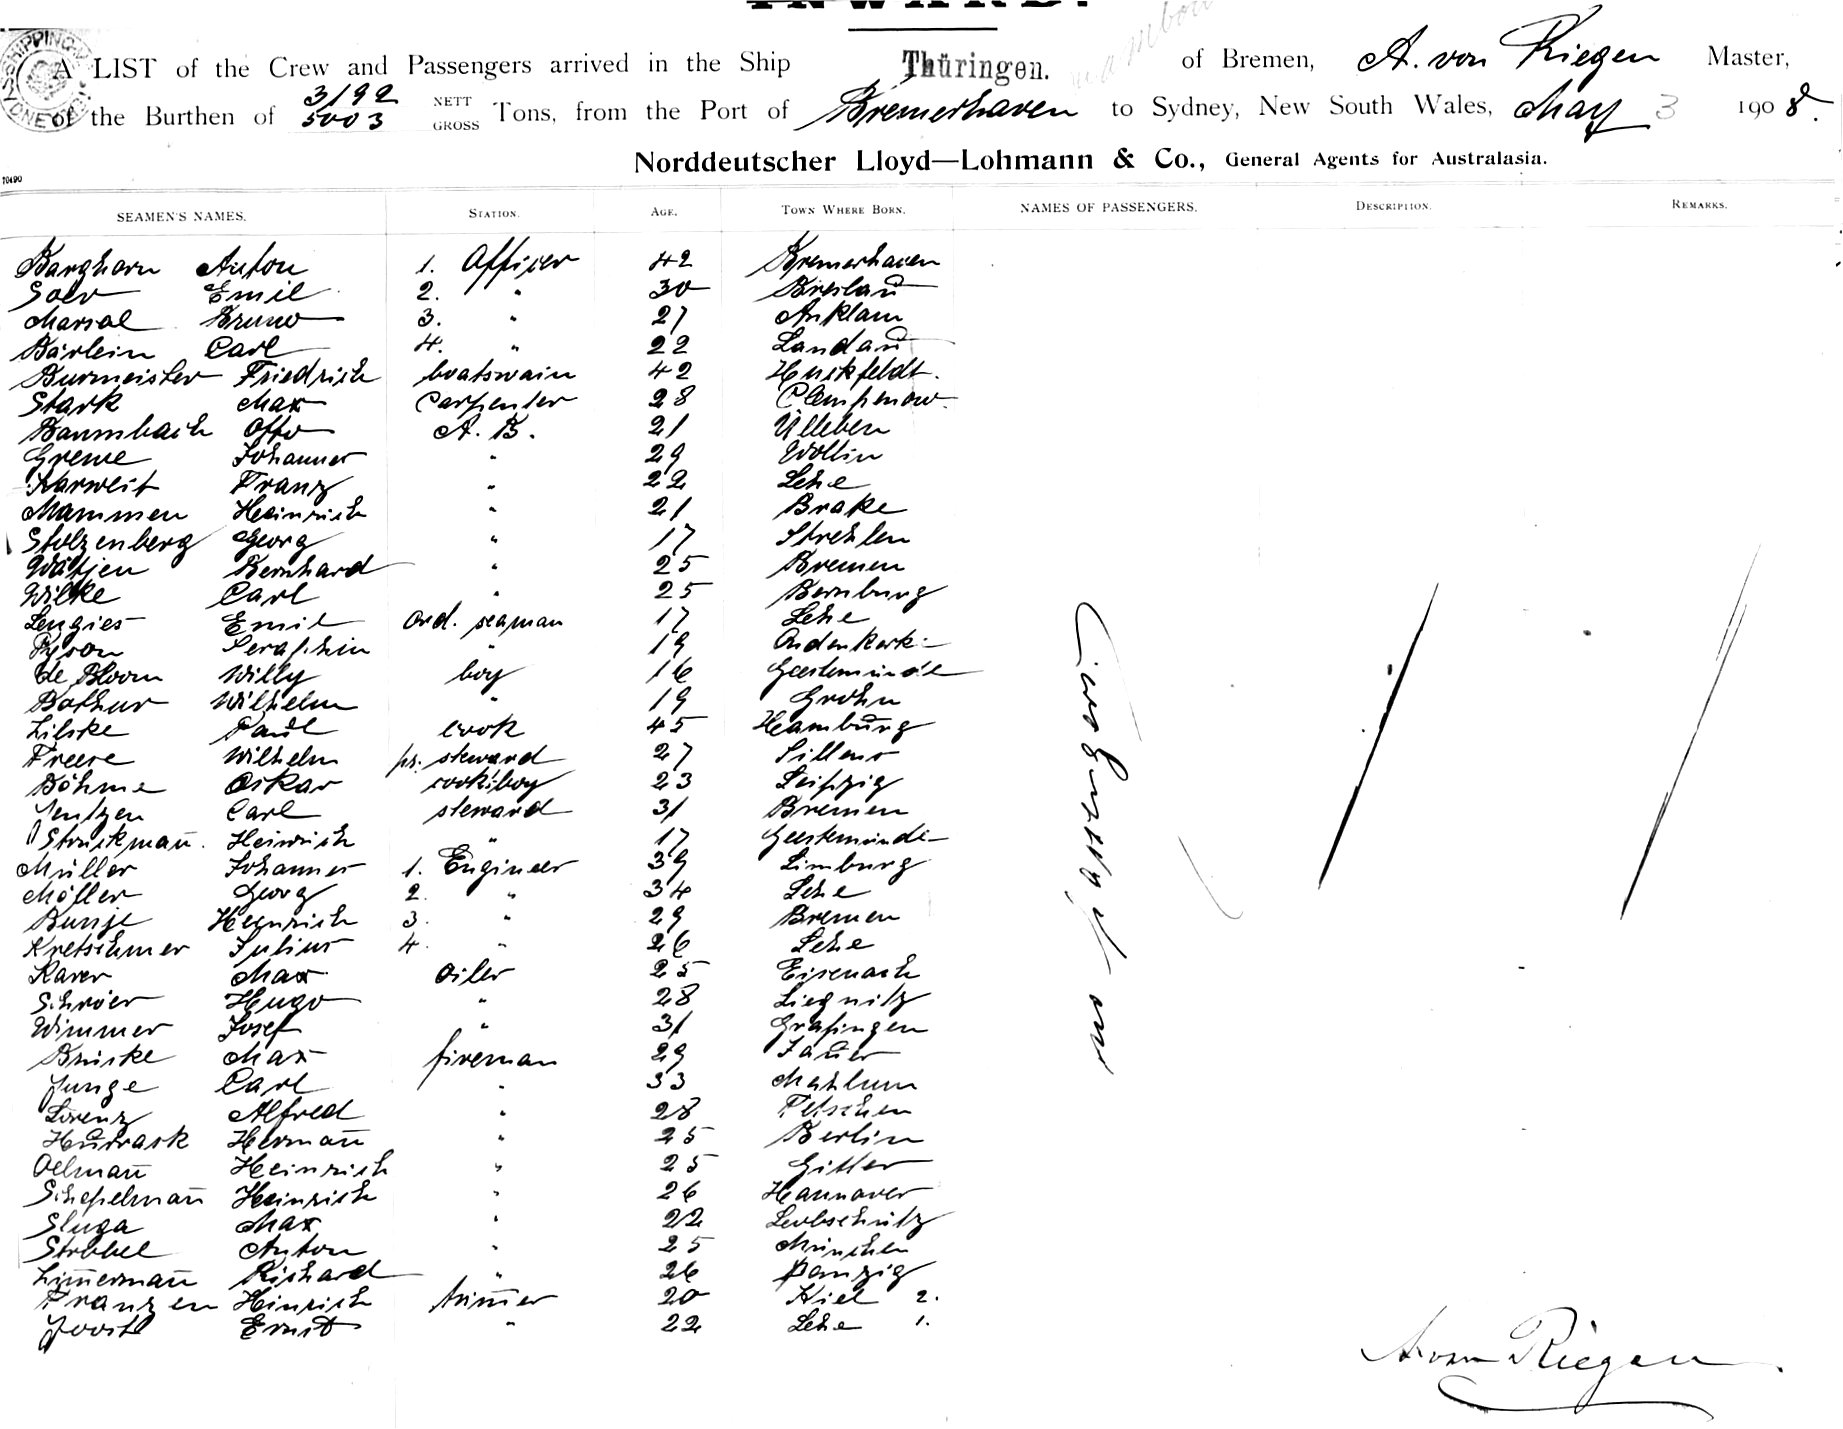 INWARD.
A LIST of the Crew and Passengers arrived in the Ship Thüringen. of Bremen, A. von Riegen Master,
of the Burthen of 3192 5003 NETT GROSS Tons, from the Port of Bremerhaven to Sydney, New South Wales, May 3 1908.
Norddeutscher Lloyd—Lohmann & Co., General Agents for Australasia.
70490
SEAMEN'S NAMES. STATION. AGE. TOWN WHERE BORN. NAMES OF PASSENGERS. DESCRIPTION. REMARKS.
Barghorn Anton 1. Officer 42 Bremerhaven
Emil 2. " 30 Breslau
Bruno 3. " 27 Anklam
Bärlein Carl 4. " 22 Landau
Burmeister Friedrich boatswain 42
Stark Max Carpenter 28
Baumbach Otto A. B. 21 Ülleben
Greme Johannes " 29 Wollin
Karweit Franz " 22 Lehe
Mammen Heinrich " 21 Brake
Stolzenberg Georg " 17 Strehlen
Wätjen Bernhard " 25 Bremen
Wilke Carl " 25 Bernburg
Lengies Emil ord. seaman 17 Lehe
Seraphin " 19
de Bloom Willy boy 16 Geestemünde
Bothur Wilhelm " 19 Grohn
Paul cook 45 Hamburg
Freese Wilhelm pr. steward 27 Sillens
Böhme Oskar cook:boy 23 Leipzig
Jentzen Carl steward 31 Bremen
Struckman̄. Heinrich " 17 Geestemünde
Müller Johannes 1. Engineer 39 Limburg
Möller Georg 2. " 34 Lehe
Bunje Heinrich 3. " 29 Bremen
Kretschmer Julius 4. " 26 Lehe
Karer Max oiler 25 Eisenach
Schröer Hugo " 28 Liegnitz
Wimmer Josef " 31 Grafingen
Max fireman 29 Jauer
Junge Carl " 33 Mahlum
Lorenz Alfred " 28
Herman̄ " 25 Berlin
Oelman̄ Heinrich " 25 Gitter
Schepelman̄ Heinrich " 26 Hannover
Sluga Max " 22 Leobschütz
Strobel Anton " 25 München
Zim̄erman̄ Richard " 26 Danzig
Franzen Hinrich trim̄er 20 Kiel 2.
Joost Ernst " 22 Lehe 1.
no Passengers
A. von Riegen